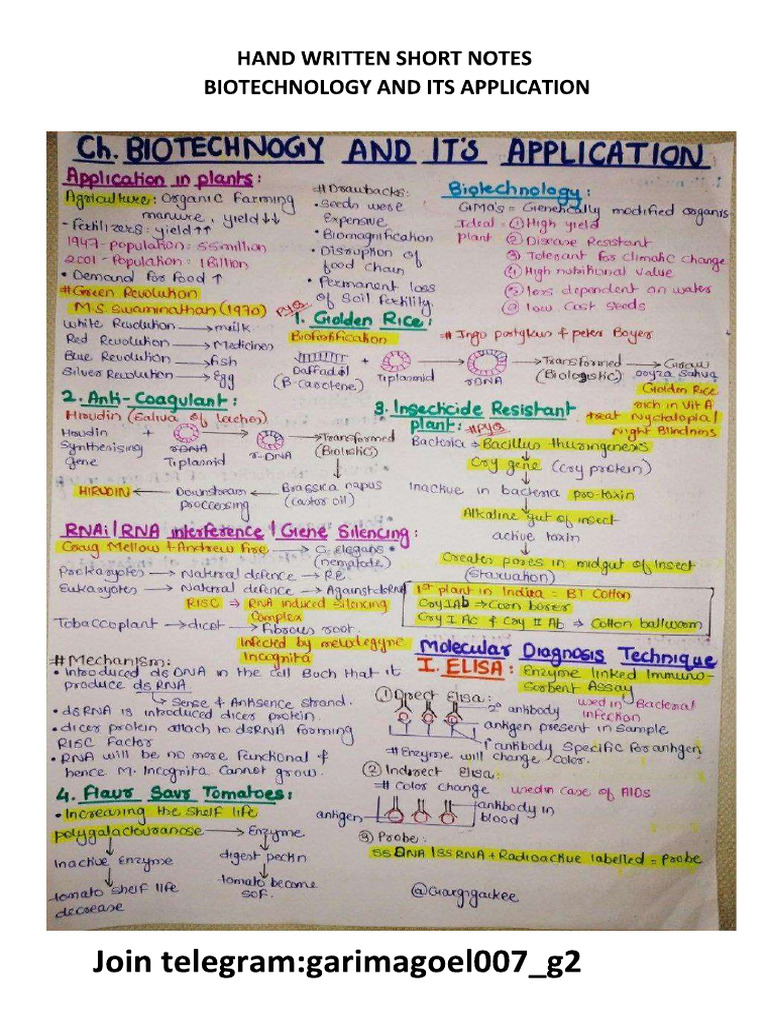 HAND WRITTEN SHORT NOTES
BIOTECHNOLOGY AND ITS APPLICATION
Ch. BIOTECHNOGY AND IT'S APPLICATION
Application in plants:
Agriculture: Organic Farming
manure, yield↓↓
- Fertilizers: yield↑↑
1947-population: 55million
2001-Population: 1Billion
• Demand for Food ↑
#Green Revolution
M.S. Swaminathan (1970)
White Revolution → milk
Red Revolution → Medicines
Blue Revolution → fish
Silver Revolution → Egg
#Drawbacks:
• Seeds were
Expensive
• Biomagnification
• Disruption of
food chain
• Permanent loss
of Soil Fertility.
Biotechnology:
GMO's = Genetically modified organis-
Ideal = ① High yield
plant ② Disease Resistant
③ Tolerant for climatic change
④ High nutritional value
⑤ less dependent on water
⑥ low cost seeds
PYQ
1. Golden Rice:
Biofortification
# Ingo portykus & peter Boyer
Daffodil + Tiplasmid → rDNA → Transformed → Grow
(B-carotene) (Biologistic) oryza sativa
Golden Rice
rich in Vit A
treat Nyctalopia/
Night Blindness
2. Anti-Coagulant:
Hirudin (Saliva of laches)
Hirudin + → → Transformed
Synthesising rDNA r-DNA (Biolistic)
gene Tiplasmid
HIRUDIN ← Downstream ← Brassica napus
proccersing (castor oil)
3. Insecticide Resistant
plant: #PYQ
Bacteria → Bacillus thuringenesis
Cry gene (cry protein)
Inactive in bacteria pro-toxin
Alkaline gut of insect
active toxin
Creates pores in midgut of Insect
(Starvation)
1st plant in Indita = BT Cotton
Cry IAb ⇒ Coon borer
Cry I Ac & Cry II Ab ⇒ Cotton ballworm
RNAi / RNA interference / Gene Silencing:
Craig Mellow + Andrew Fire → C. elegans
(nematode)
Prokaryotes → Natural defence → R.E.
Eukaryotes → Natural defence → Against dsRNA
RISC ⇒ RNA induced Silencing
Complex
Tobacco plant → dicot → Fibrous root.
Infected by meloidegyne
Incognita
#Mechanism:
• Introduced dsDNA in the cell Such that it
produce dsRNA
→ Sense & Antisence strand.
• dsRNA is introduced dicer protein.
• dicer protein attach to dsRNA forming
RISC Factor
• RNA will be no more Functional &
hence M. Incognita Cannot grow.
4. Flavr Savr Tomatoes:
• Increasing the shelf life
polygalactouranose → Enzyme
Inactive Enzyme digest pectin
tomato shelf life tomato become
decrease sof.
Molecular Diagnosis Technique
I. ELISA: Enzyme linked Immuno-
Sorbent Assay
① Direct Elisa: used in Bacterial
infection
2° antibody
antigen present in Sample
1° antibody Specific for antigen
#Enzyme will change color.
② Indirect Elisa:
=# Color change used in case of AIDs
antigen antibody in
blood
③ Probe:
SS DNA | SS RNA + Radioactive labelled = Probe
@Gargigackee
Join telegram:garimagoel007_g2